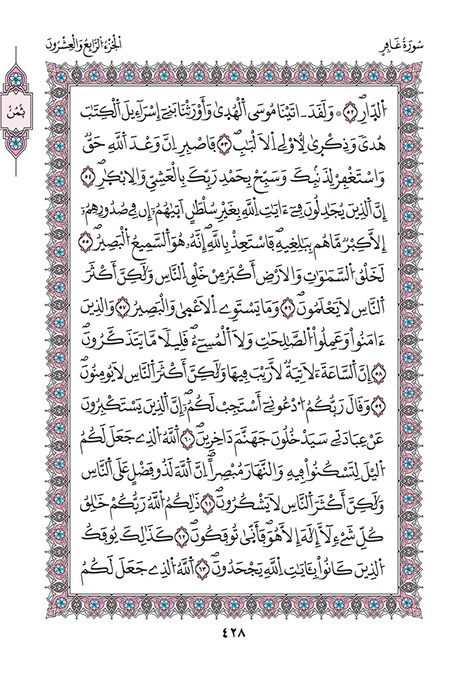 سُورَةُ غَافِرٍ
الجُزْءُ الرَّابِعُ وَالْعِشْرُونَ
ثُمُنٌ
اُلدّ۪ارِۖ ٥٢ ۞ وَلَقَدَ اٰتَيْنَا مُوسَى اَلْهُد۪ىٰ وَأَوْرَثْنَا بَنِےٓ إِسْرَآءِيلَ اَلْكِتَٰبَ
هُدىٗ وَذِكْر۪ىٰ لِأُوْلِے اِلَالْبَٰبِۖ ٥٣ فَاصْبِرِ اِنَّ وَعْدَ اَللَّهِ حَقّٞۖ
وَاسْتَغْفِرْ لِذَنۢبِكَ وَسَبِّحْ بِحَمْدِ رَبِّكَ بِالْعَشِيِّ وَالِابْكٰ۪رِۖ ٥٤
إِنَّ اَلذِينَ يُجَٰدِلُونَ فِےٓ ءَايَٰتِ اِللَّهِ بِغَيْرِ سُلْطَٰنٍ اَت۪يٰهُمُۥٓ إِن فِے صُدُورِهِمُۥٓ
إِلَّا كِبْرٞ مَّا هُم بِبَٰلِغِيهِۖ فَاسْتَعِذْ بِاللَّهِۖ إِنَّهُۥ هُوَ اَلسَّمِيعُ اُلْبَصِيرُۖ ٥٥
لَخَلْقُ اُلسَّمَٰوَٰتِ وَالَارْضِ أَكْبَرُ مِنْ خَلْقِ اِلنَّاسِ وَلَٰكِنَّ أَكْثَرَ
اَلنَّاسِ لَا يَعْلَمُونَۖ ٥٦ وَمَا يَسْتَوِے اِلَاعْم۪ىٰ وَالْبَصِيرُۖ ٥٧ وَالذِينَ
ءَامَنُواْ وَعَمِلُواْ اُلصَّٰلِحَٰتِ وَلَا اَلْمُسِےٓءُۖ قَلِيلاٗ مَّا يَتَذَكَّرُونَۖ
٥٨ إِنَّ اَلسَّاعَةَ لَأٓتِيَةٞ لَّا رَيْبَ فِيهَاۖ وَلَٰكِنَّ أَكْثَرَ اَلنَّاسِ لَا يُومِنُونَۖ
٥٩ وَقَالَ رَبُّكُمُ اُدْعُونِےٓ أَسْتَجِبْ لَكُمُۥٓۖ إِنَّ اَلذِينَ يَسْتَكْبِرُونَ
عَنْ عِبَادَتِے سَيَدْخُلُونَ جَهَنَّمَ دَاخِرِينَۖ ٦٠ اَللَّهُ اُلذِے جَعَلَ لَكُمُ
اُليْلَ لِتَسْكُنُواْ فِيهِ وَالنَّهَارَ مُبْصِراًۖ اِنَّ اَللَّهَ لَذُو فَضْلٍ عَلَى اَلنَّاسِ
وَلَٰكِنَّ أَكْثَرَ اَلنَّاسِ لَا يَشْكُرُونَۖ ٦١ ذَٰلِكُمُ اُللَّهُ رَبُّكُمْ خَٰلِقُ
كُلِّ شَےْءٖ لَّآ إِلَٰهَ إِلَّا هُوَۖ فَأَنّ۪ىٰ تُوفَكُونَۖ ٦٢ كَذَٰلِكَ يُوفَكُ
اُلذِينَ كَانُواْ بِـَٔايَٰتِ اِللَّهِ يَجْحَدُونَۖ ٦٣ اَللَّهُ اُلذِے جَعَلَ لَكُمُ
٤٢٨